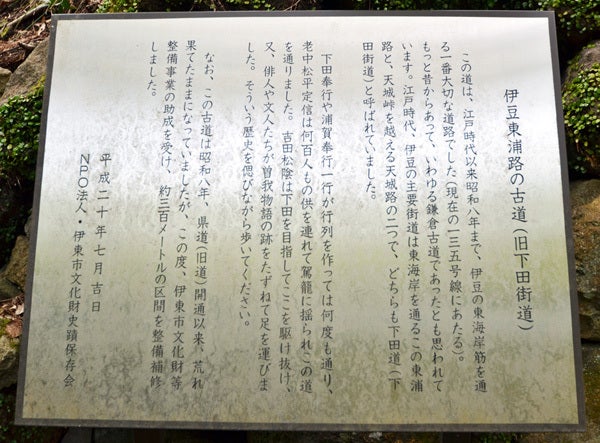 伊豆東浦路の古道（旧下田街道）
この道は、江戸時代以来昭和八年まで、伊豆の東海岸筋を通
る一番大切な道路でした（現在の一三五号線にあたる）。
もっと昔からあって、いわゆる鎌倉古道であったとも思われて
います。江戸時代、伊豆の主要街道は東海岸を通るこの東浦
路と、天城峠を越える天城路の二つで、どちらも下田道（下
田街道）と呼ばれていました。
下田奉行や浦賀奉行一行が行列を作っては何度も通り、
老中松平定信は何百人もの供を連れて駕籠に揺られこの道
を通りました。吉田松陰は下田を目指してここを駆け抜け、
又、俳人や文人たちが曽我物語の跡をたずねて足を運びま
した。そういう歴史を偲びながら歩いてください。
なお、この古道は昭和八年、県道（旧道）開通以来、荒れ
果てたままになっていましたが、この度、伊東市文化財等
整備事業の助成を受け、約三百メートルの区間を整備補修
しました。
平成二十年七月吉日
NPO法人・伊東市文化財史蹟保存会